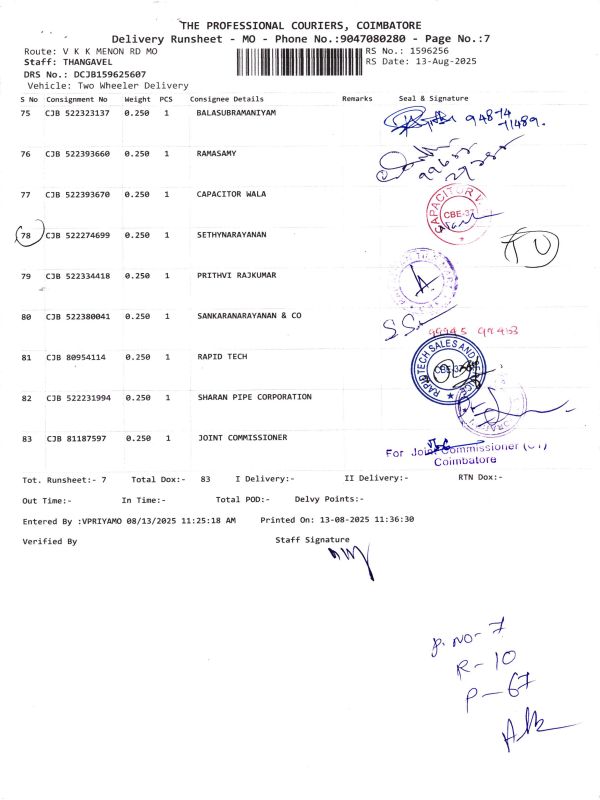 THE PROFESSIONAL COURIERS, COIMBATORE
Delivery Runsheet - MO - Phone No.:9047080280 - Page No.:7
Route: V K K MENON RD MO
RS No.: 1596256
Staff: THANGAVEL
RS Date: 13-Aug-2025
DRS No.: DCJB159625607
Vehicle: Two Wheeler Delivery
S No Consignment No Weight PCS Consignee Details Remarks Seal & Signature
75 CJB 522323137 0.250 1 BALASUBRAMANIYAM
94874
71489.
76 CJB 522393660 0.250 1 RAMASAMY
77 CJB 522393670 0.250 1 CAPACITOR WALA
CAPACITOR W
CBE-37
78 CJB 522274699 0.250 1 SETHYNARAYANAN
79 CJB 522334418 0.250 1 PRITHVI RAJKUMAR
80 CJB 522380041 0.250 1 SANKARANARAYANAN & CO
99945 99453
81 CJB 80954114 0.250 1 RAPID TECH
RAPID TECH SALES AND SERVICE
CBE-37
82 CJB 522231994 0.250 1 SHARAN PIPE CORPORATION
83 CJB 81187597 0.250 1 JOINT COMMISSIONER
For Joint Commissioner (CT)
Coimbatore
Tot. Runsheet:- 7 Total Dox:- 83 I Delivery:- II Delivery:- RTN Dox:-
Out Time:- In Time:- Total POD:- Delvy Points:-
Entered By :VPRIYAMO 08/13/2025 11:25:18 AM Printed On: 13-08-2025 11:36:30
Verified By Staff Signature
P. NO- 7
R-10
P-67